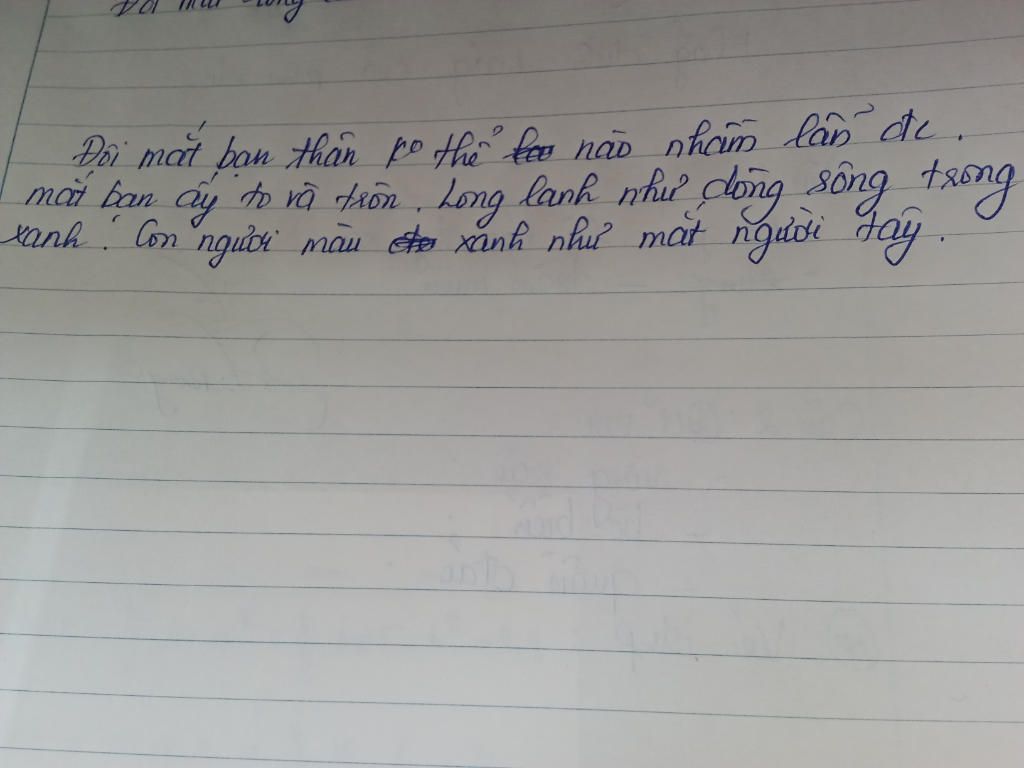 Đôi mắt bạn thân ko thể nào nhầm lẫn đc.
mắt bạn ấy to và tròn. Long lanh như dòng sông trong
xanh. Con người màu xanh như mắt người tây.